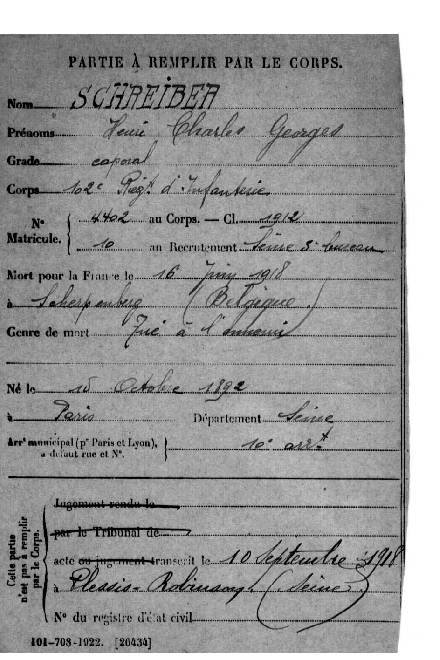 PARTIE À REMPLIR PAR LE CORPS.
Nom SCHREIBER
Prénoms Henri Charles Georges
Grade caporal
Corps 102e Régt d'Infanterie
N° Matricule. { 4402 au Corps. — Cl. 1912
10 au Recrutement Seine 3e bureau
Mort pour la France le 16 Juin 1918
à Scherpenberg (Belgique)
Genre de mort Tué à l'ennemi
Né le 15 Octobre 1892
à Paris Département Seine
Arrt municipal (pr Paris et Lyon), à défaut rue et N°. } 10e arrt
Cette partie n'est pas à remplir par le Corps.
Jugement rendu le
par le Tribunal de
acte ou jugement transcrit le 10 Septembre 1918
à Plessis-Robinson (Seine)
N° du registre d'état civil
101-708-1922. [26434]